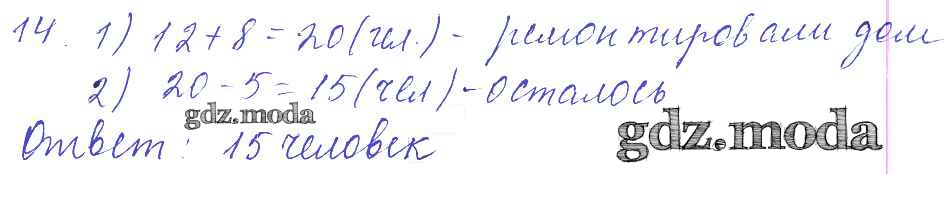 14. 1) 12+8=20(чел.) - ремонтировали дом
2) 20-5=15(чел)-осталось
gdz.moda
gdz.moda
Ответ: 15 человек